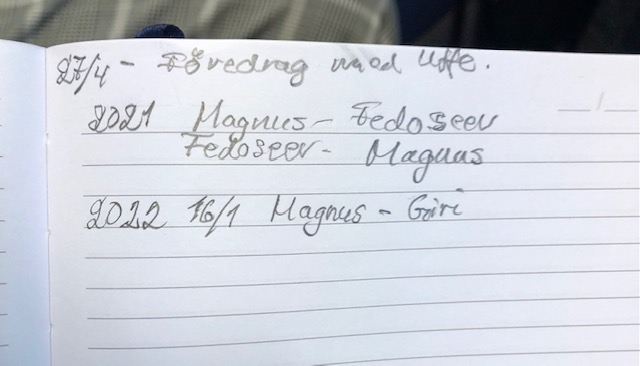 27/4 - Föredrag med Uffe.
2021 Magnus - Fedoseev
Fedoseev - Magnus
2022 16/1 Magnus - Giri